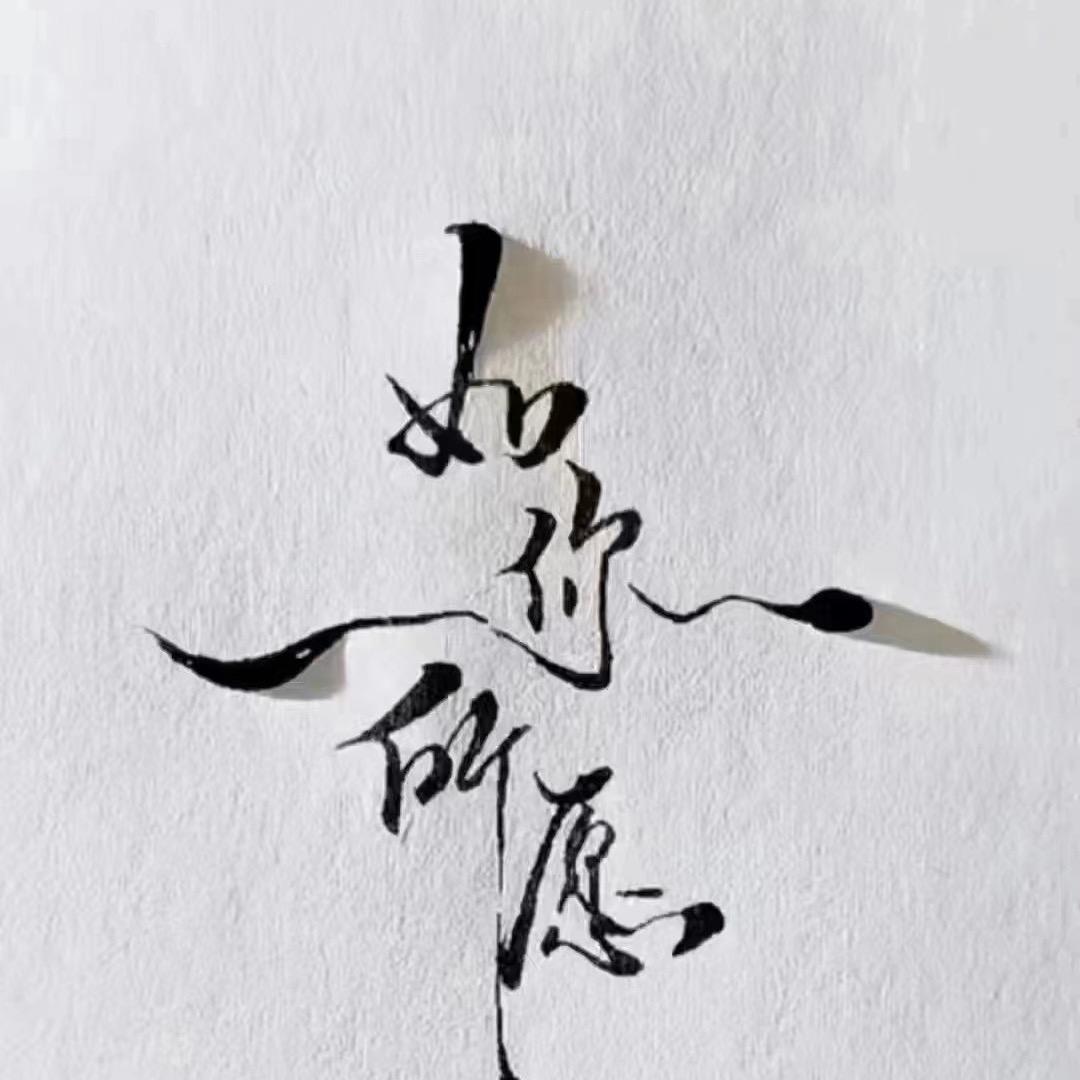 如
你
所愿